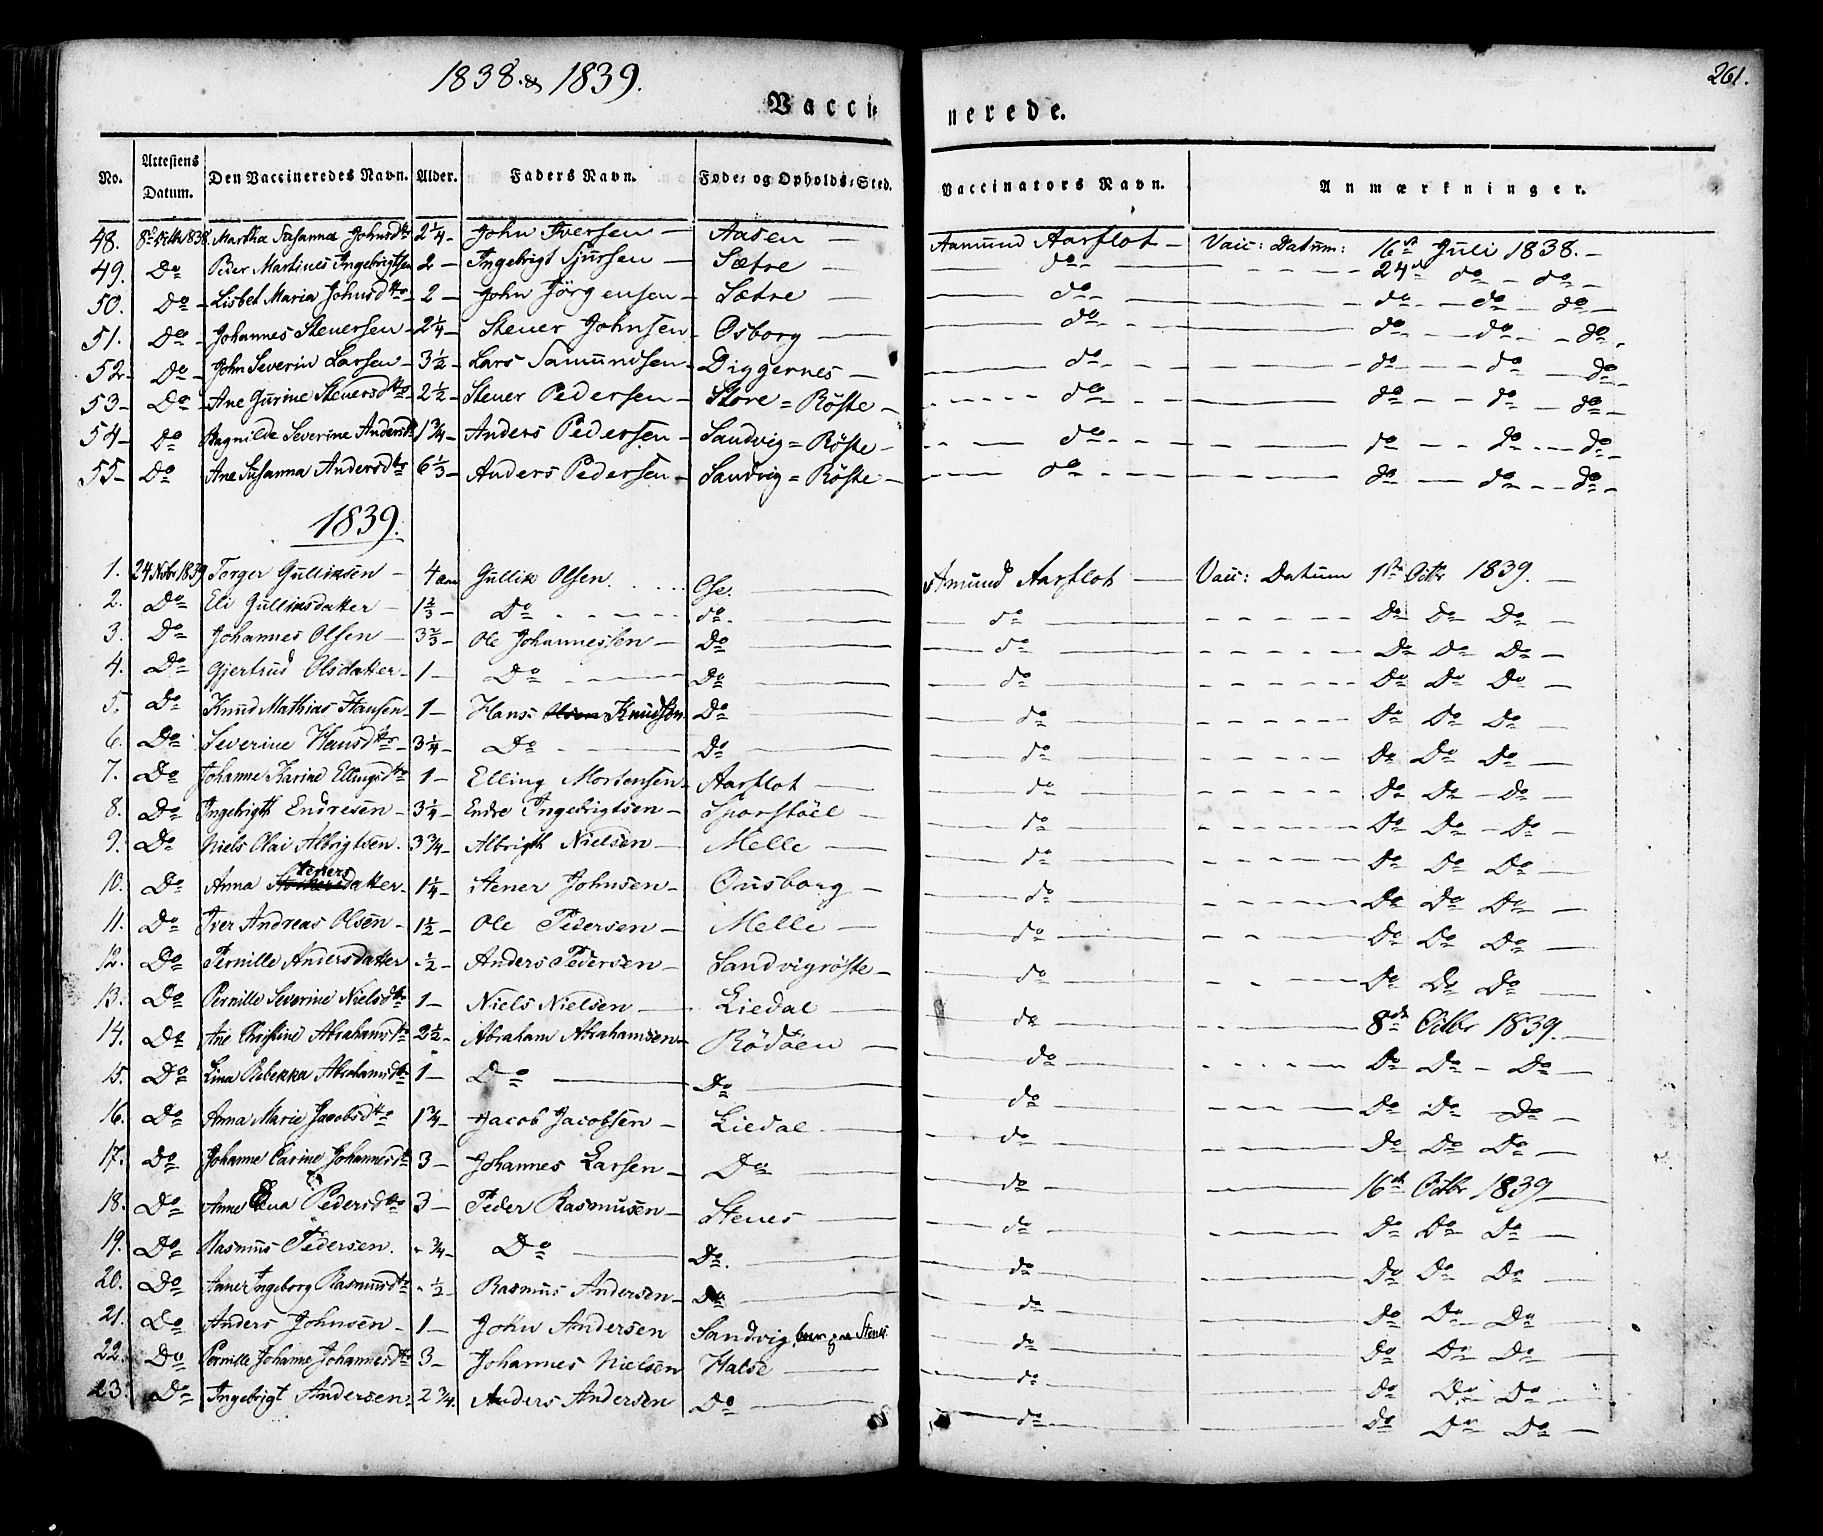 1838. & 1839.
261.
Vacci-nerede.
No. | Attestens Datum. | Den Vaccineredes Navn. | Alder. | Faders Navn. | Føde- og Opholds-Sted. | Vaccinators Navn. | Anmærkninger.
48. 8de 1838. Martha Susanna Johnsdtr 2 1/4 – John Iversen – Aasen – Aamund Aarflot – Vacc: Datum: 16de Juli 1838. –
49. Do Peder Martinus Ingebrigtsen 2 – Ingebrigt Sjursen – Sætre – do – 24de do – do –
50. Do – Lisbet Maria Johnsdtr – 2 – John Jörgensen – Sætre – do – do – do – do –
51. Do – Johannes Stenersen – 2 1/4 – Stener Johnsen – Osborg – do – do – do – do –
52 – Do – John Severin Larsen – 3 1/2 – Lars Samundsen – Diggernes – do – do – do – do –
53 – Do – Ane Gurine Stenersdtr – 2 1/2 – Stener Pedersen – Store = Röste – do – do – do – do –
54 – Do Ragnilde Severine Andersdtr 1 3/4 – Anders Pedersen – Sandvig = Röste – do – do – do – do –
55 – Do Ane Susanna Andersdtr 6 1/3 – Anders Pedersen – Sandvig = Röste – do – do – do – do –
1839.
1. 24 Novbr 1839 Torger Gulliksen – 4 aar Gullik Olsen. Ose. Amund Aarflot – Vacc: Datum 1ste Octbr 1839. –
2. Do Eli Gulliksdatter – 1 2/3 – Do – do. – do – Do Do Do –
3. Do Johannes Olsen – 3 2/3 – Ole Johannessen – Do – do – Do Do Do –
4. Do Gjertrud Olsdatter – 1 – Do – Do – do – Do Do Do –
5. Do Knud Mathias Hansen – 1 – Hans Knudsen Do – do – Do Do Do –
6. Do Severine Hansdtr – 3 1/4 – Do – Do – do – Do Do Do –
7. Do Johanne Karine Ellingsdtr 1 – Elling Mortensen – Aarflot – do – Do Do – Do –
8. Do Ingebrigth Endresen – 3 1/4 – Endre Ingebrigtsen – Sporstöel – do – Do Do – Do –
9. Do Niels Olai Albrigtsen. 3 3/4 – Albrigth Nielsen – Melle – do – Do Do Do –
10. Do Anna Stenersdatter – 1 1/4 – Stener Johnsen – Ousborg – do – Do Do Do –
11. Do Iver Andreas Olsen – 1 1/2 – Ole Pedersen – Melle – do – Do Do Do –
12. Do Pernille Andersdatter – 1/2 – Anders Pedersen – Sandvigröste – do – Do Do Do –
13. Do Pernille Severine Nielsdtr 1 – Niels Nielsen – Liedal – do – 8de Octbr 1839. –
14. Do Ane Christine Abrahamsdtr 2 1/2 – Abraham Abrahamsen – Rödöen – do – Do Do – Do –
15. Do Lina Rebekka Abrahamsdtr 1 – Do – Do – do – Do Do Do –
16. Do Anna Marie Jacobsdtr 1 3/4 – Jacob Jacobsen – Liedal – do – Do Do Do –
17. Do Johanne Carine Johannesdtr 3 – Johannes Larsen – Do – do – 16de Octbr 1839 –
18. Do Anne Pedersdtr 3 – Peder Rasmusen – Stenes – do – Do Do Do –
19. Do Rasmus Pedersen. – 3/4 – Do – Do. – do – Do Do Do –
20. Do Anne Ingeborg Rasmusdtr – 1/2 – Rasmus Andersen – Do – do – Do Do Do –
21. Do Anders Johnsen – 1 – John Andersen Sandvig, Stenes. – do – Do Do Do –
22. Do Pernille Johanne Johannesdtr 3 – Johannes Nielsen Halse – do – Do Do Do –
23. Do Ingebrigt Andersen – 2 3/4. Anders Andersen Do – do – Do Do Do –